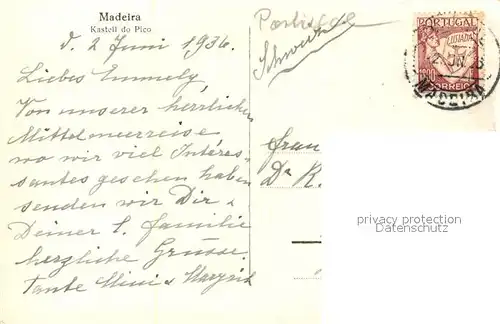 Madeira
Kastell do Pico
d. 2 Juni 1936.
Liebes Emmely
Von unserer herrlichen
Mittelmeerreise
wo wir viel Interes-
santes gesehen haben
senden wir Dir &
Deiner l. Familie
herzliche Grüsse.
Tante Mini &
Schweiz
PORTUGAL
LUSIADAS
CORREIO
MADEIRA
Frau
Dr K.
privacy protection
Datenschutz